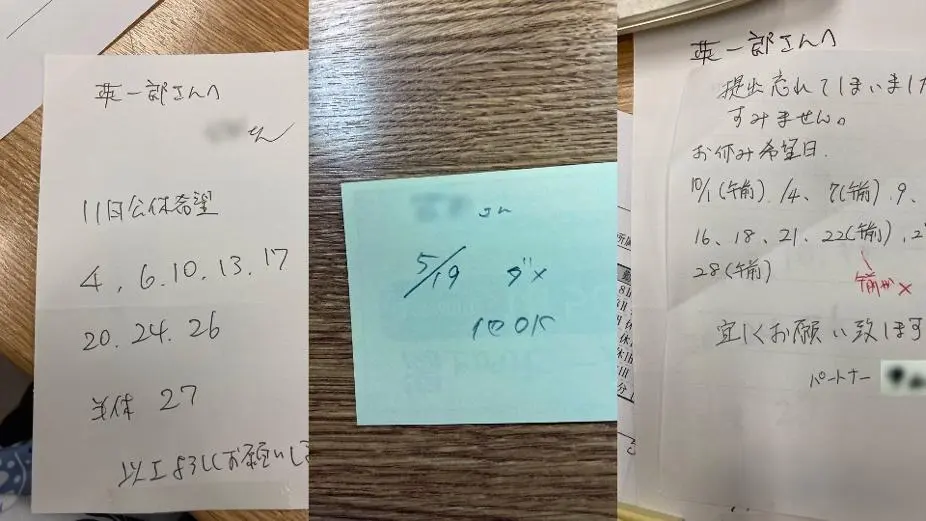 英一郎さんへ
さん
11月公休希望
4, 6.10.13.17
20.24.26
半休 27
以上よろしくお願いし
さん
5/19
OK
英一郎さんへ
提出忘れてしまいました
すみません。
お休み希望日.
10/1(午前). /4、7(午前).9、
16、18、21、22(午前)、
28(午前)
午前が×
宜しくお願い致します
パートナー